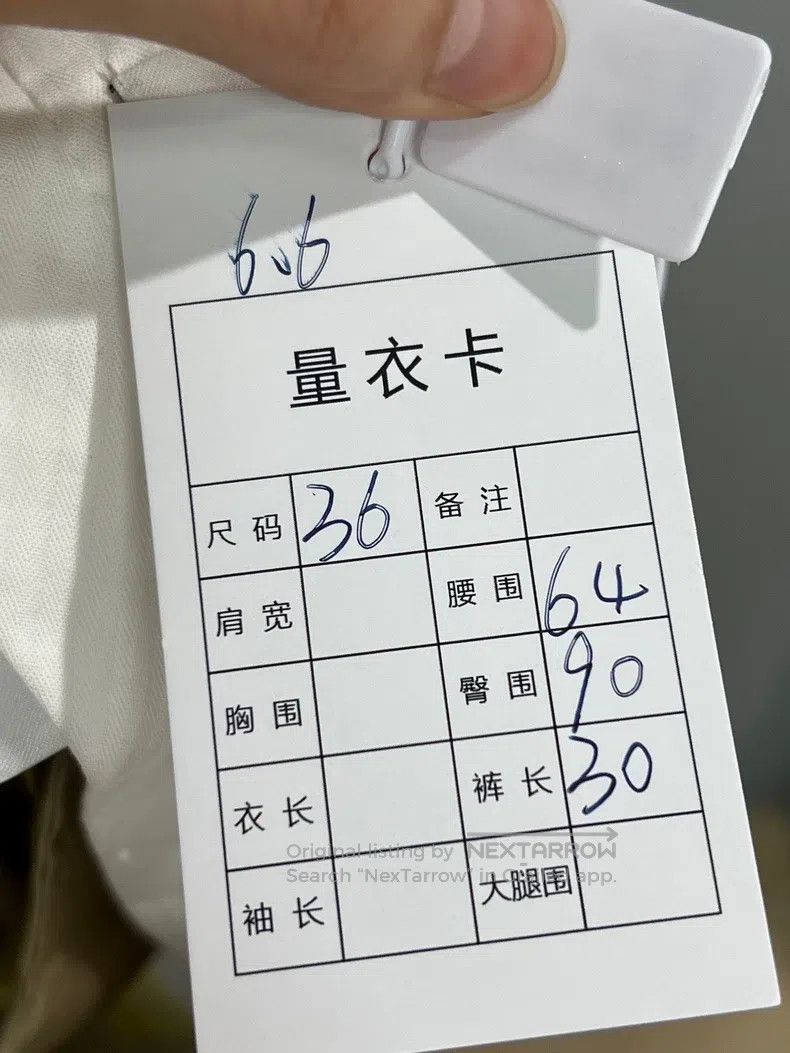 6.6
量衣卡
尺码 36 备注
肩宽 腰围 64
胸围 臀围 90
衣长 裤长 30
Original listing by NEXTARROW
Search "NexTarrow" in app.
袖长 大腿围